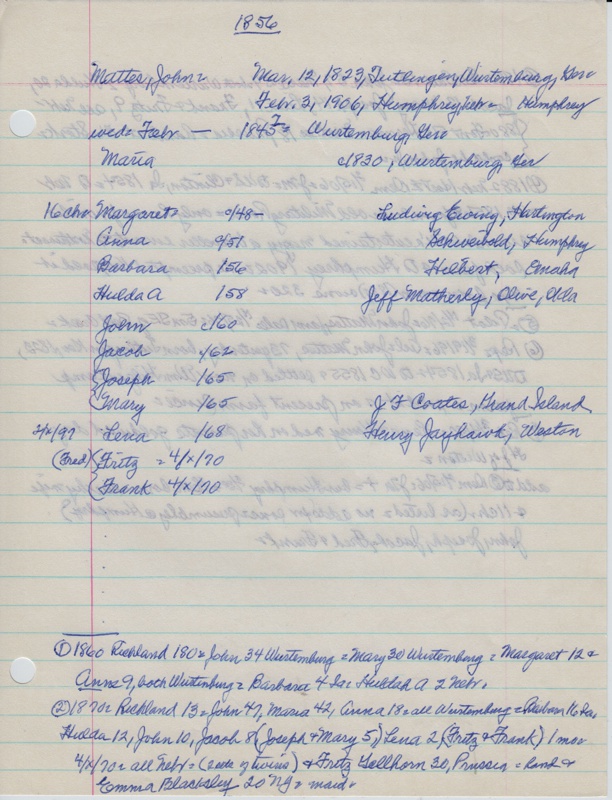 1856
Mattes, John = Mar. 12, 1823, Tutlingen, Wurtemburg, Ger
Febr. 3, 1906, Humphrey, Nebr = Humphrey
wed = Febr — 1845 = Wurtemburg, Ger
Maria c1820, Wurtemburg, Ger
16 chn Margaret = c/48 – Ludwig Ewing, Hartington
Anna c/51 Humphrey
Barbara 1/56 Hilbert, Omaha
Hulda A 1/58 Jeff Matherly, Olive, Okla
John c/60
Jacob 1/62
(Joseph 1/65
(Mary 1/65 J F Coates, Grand Island
Lena 1/68 Henry Jayhawk, Weston
(Fred) (Fritz = 4/x/70
(Frank 4/x/70
① 1860 Richland 180 = John 34 Wurtemburg = Mary 30 Wurtemburg = Margaret 12 &
Anna 9, both Wurtemburg = Barbara 4 Ia = Huldah A 2 Nebr.
② 1870 = Richland 13 = John 47, Maria 42, Anna 18 = all Wurtemburg = Barbara 16 Ia,
Hulda 12, John 10, Jacob 8 (Joseph & Mary 5), Lena 2 (Fritz & Frank) 1 mo
4/x/70 = all Nebr = (sets of twins) & Fritz Sellhorn 30, Prussia = hand &
Emma Blacksley 20 NY = maid